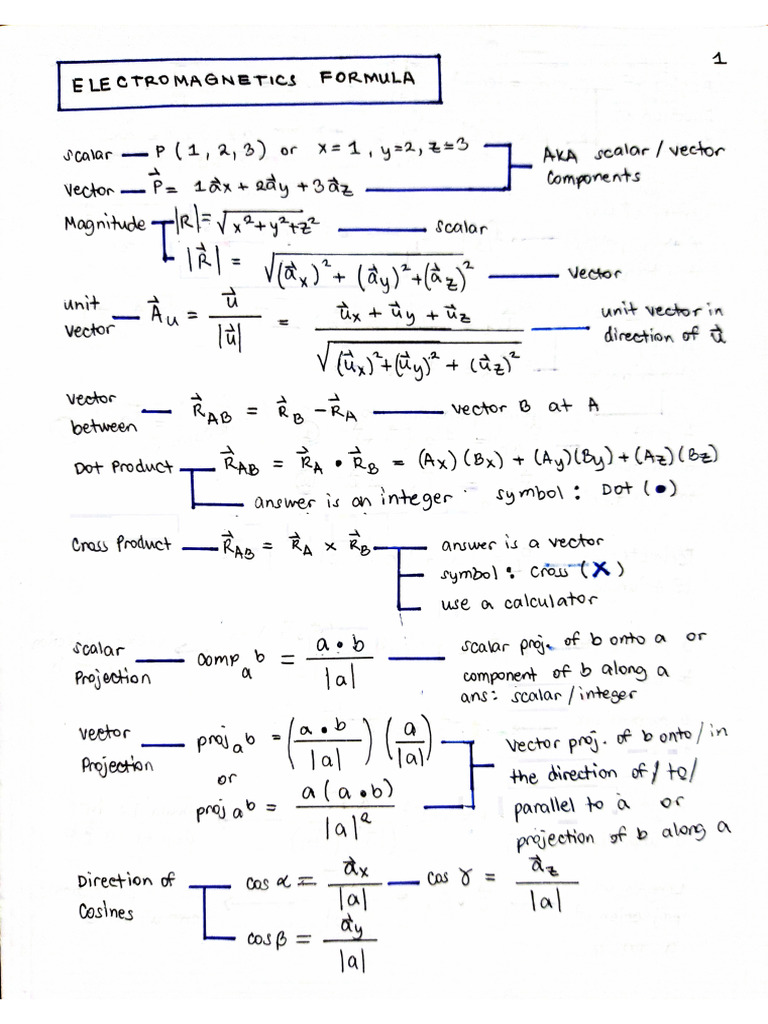 1
ELECTROMAGNETICS FORMULA
scalar — P (1, 2, 3) or x=1, y=2, z=3 — AKA scalar / vector components
vector — P⃗ = 1a⃗x + 2a⃗y + 3a⃗z
Magnitude — |R| = √(x² + y² + z²) — scalar
|R⃗| = √((a⃗x)² + (a⃗y)² + (a⃗z)²) — vector
unit vector — A⃗u = u⃗ / |u⃗| = (u⃗x + u⃗y + u⃗z) / √((u⃗x)² + (u⃗y)² + (u⃗z)²) — unit vector in direction of u⃗
vector between — R⃗AB = R⃗B − R⃗A — vector B at A
Dot Product — R⃗AB = R⃗A • R⃗B = (Ax)(Bx) + (Ay)(By) + (Az)(Bz)
answer is an integer symbol : Dot (•)
Cross Product — R⃗AB = R⃗A × R⃗B — answer is a vector
symbol : cross (X)
use a calculator
scalar Projection — comp_a b = a • b / |a| — scalar proj. of b onto a or
component of b along a
ans: scalar / integer
vector Projection — proj_a b = (a • b / |a|) (a / |a|) — vector proj. of b onto / in
the direction of / to /
or
parallel to a or
proj_a b = a (a • b) / |a|²
projection of b along a
Direction of Cosines — cos α = a⃗x / |a| — cos γ = a⃗z / |a|
cos β = a⃗y / |a|